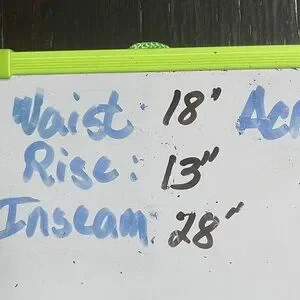 Waist: 18" Ac
Rise: 13"
Inseam 28"